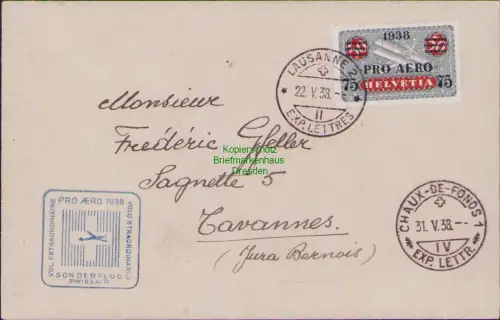 1938
PRO AERO
75 HELVETIA 75
LAUSANNE 2
22. V. 38. -
II
EXP. LETTRES
Monsieur
Frédéric Gfeller
Sagnette 5
Tavannes
(Jura Bernois)
Kopierschutz
Briefmarkenhaus
Dresden
PRO AERO 1938
VOL EXTRAORDINAIRE
VOLO STRAORDINARIO
SONDERFLUG
SWISSAIR
CHAUX-DE-FONDS 1
31. V. 38. --
IV
EXP. LETTR.